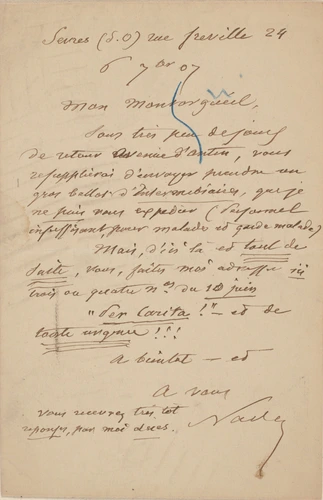 Sèvres (S.O) rue Freville 24
6 7bre 07
Mon Montorgueil,
Sous très peu de jours
de retour avenue d'Antin, vous
supplierai d'envoyer prendre un
gros ballot d'Intermédiaires, que je
ne puis vous expédier (Personnel
insuffisant, pour malade et garde malade)
Mais, d'ici là et tout de
suite, vous, faites moi adresser ici
trois ou quatre nos du 10 juin
"Per Carita!" — et de
toute urgence!!!
A bientot — et
A vous
vous recevrez très tot
réponses, par moi dues.
Nadar